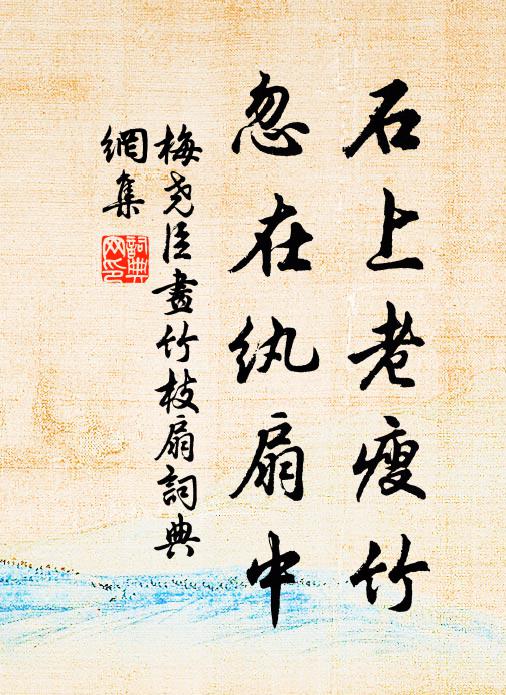 石上老瘦竹
忽在纨扇中
梅尧臣畫竹枝扇詞典
網集
詞典
网印